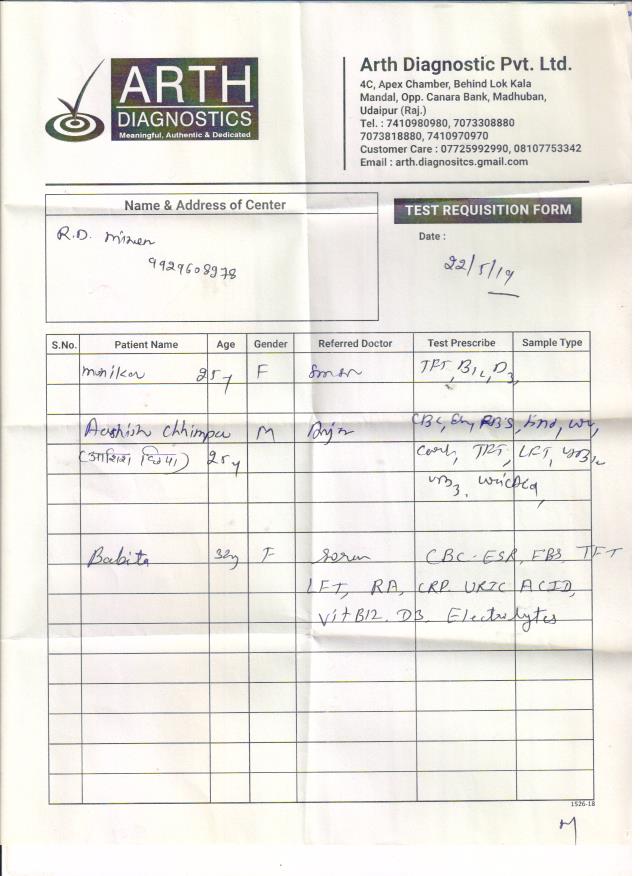 ARTH
DIAGNOSTICS
Meaningful, Authentic & Dedicated
Arth Diagnostic Pvt. Ltd.
4C, Apex Chamber, Behind Lok Kala
Mandal, Opp. Canara Bank, Madhuban,
Udaipur (Raj.)
Tel. : 7410980980, 7073308880
7073818880, 7410970970
Customer Care : 07725992990, 08107753342
Email : arth.diagnositcs.gmail.com
Name & Address of Center
TEST REQUISITION FORM
R.D.
9929608978
Date :
22/5/19
S.No. Patient Name Age Gender Referred Doctor Test Prescribe Sample Type
monika 25y F TFT, B12, D3,
Aashish Chhimpa M CBC, RBS,
25y TFT, LFT,
Babita 32y F CBC-ESR, FBS, TFT
LFT, RA, CRP. URIC ACID,
Vit B12. D3. Electrolytes
1526-18